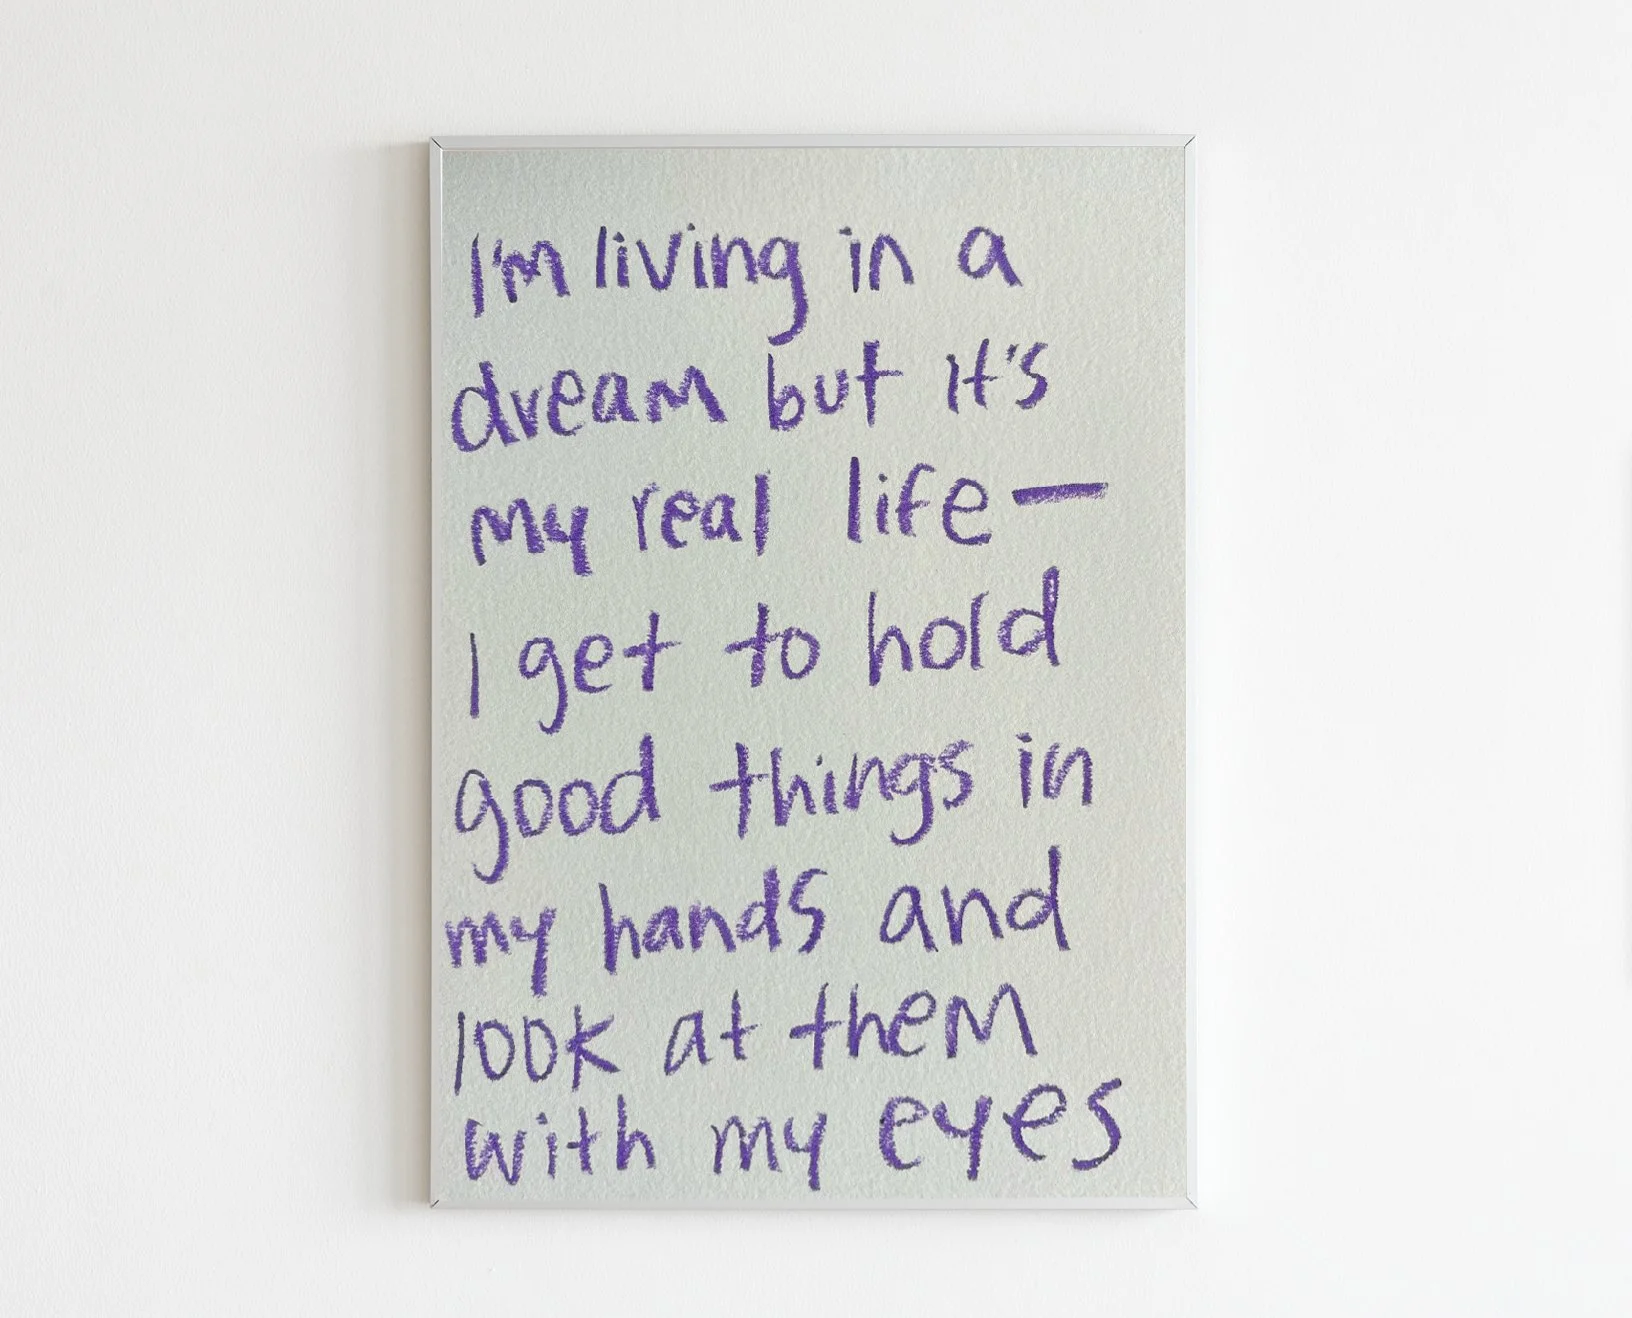 I'm living in a
dream but it's
my real life—
I get to hold
good things in
my hands and
look at them
with my eyes